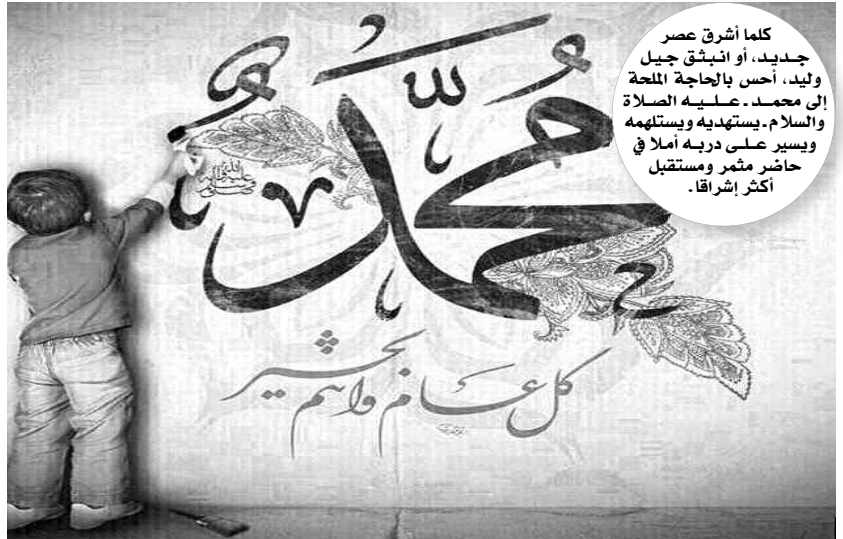 كلما أشرق عصر
جديد، أو انبثق جيل
وليد، أحس بالحاجة الملحة
إلى محمد ـ عليه الصلاة
والسلام ـ يستهديه ويستلهمه
ويسير على دربه أملا في
حاضر مثمر ومستقبل
أكثر إشراقا.
مُحَمَّدٌ
صلى الله عليه وسلم
كل عام وانتم بخير